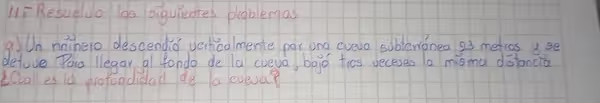 4- Resuelvo los siguientes problemas
a) Un minero descendió verticalmente por una cueva subterránea 93 metros y se
detuvo Para llegar al fondo de la cueva, bajó tres veceses la misma distancia
¿Cuál es la profundidad de la cueva?